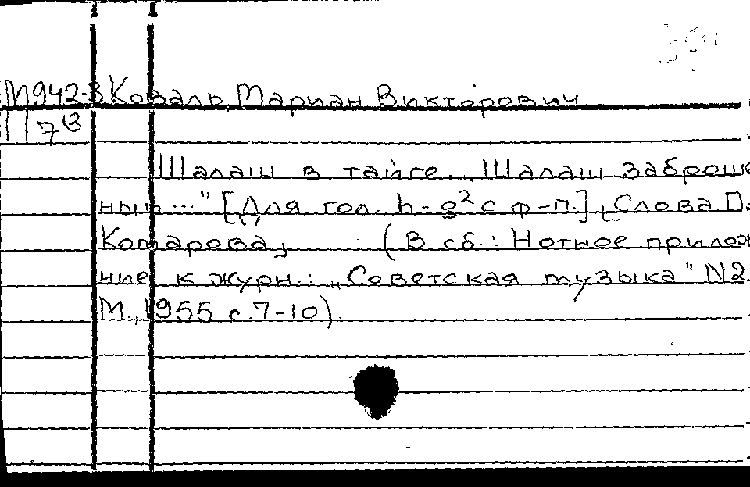 М942-3 Коваль, Мариан Викторович
П7
Шалаш в тайге. „Шалаш заброшен
ный..." [Для гол. h-g² с ф-п.], Слова П.
Комарова, (В сб.: Нотное приложе
ние к журн.: „Советская музыка" N2.
М., 1955 с.7-10).